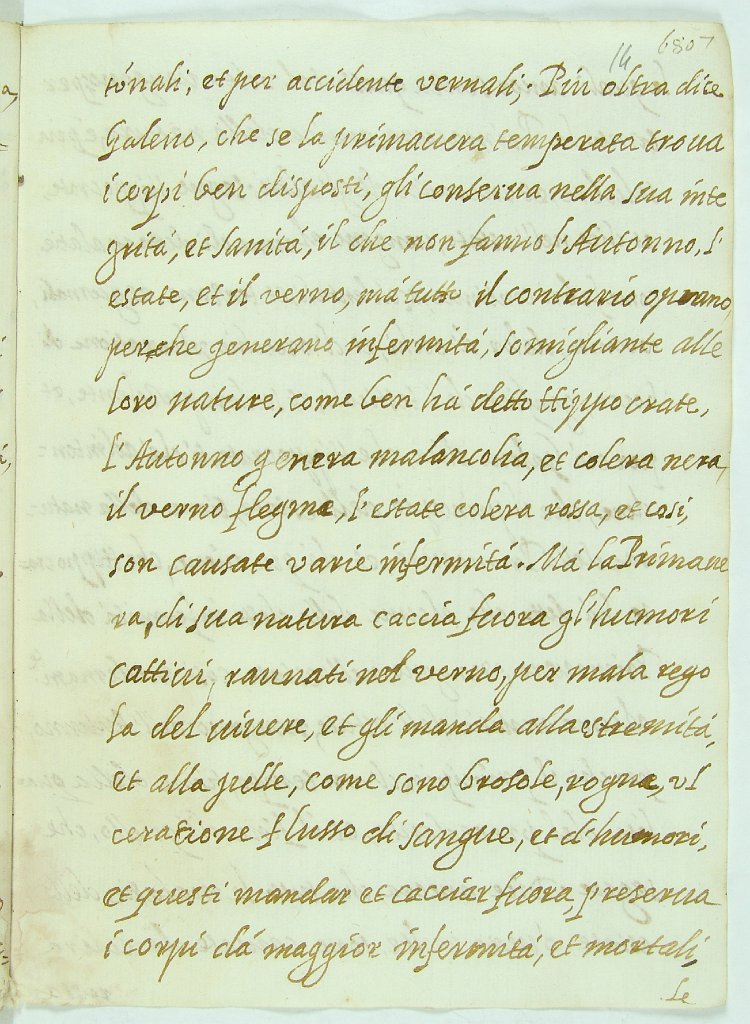 14 6807
tónali, et per accidente vernali; Piu oltra dice
Galeno, che se la primauera temperata troua
i corpi ben disposti, gli conserua nella sua inte
gritá, et Sanitá, il che non fanno l'Autonno, l'
estate, et il verno, má tutto il contrario operano,
perche generano infermitá, somigliante alle
loro nature, come ben há detto Hippocrate,
l'Autonno genera malancolia, et colera nera,
il verno flegma, l'estate colera rossa, et cosi,
son causate varie infermitá. Má la Primaue
ra, di sua natura caccia fuora gl'humori
cattiui, raunati nel verno, per mala rego
la del viuere, et gli manda alla estremitá,
et alla pelle, come sono brosole, rogna, vl
ceratione flusso di sangue, et d'humori,
et questi mandar et cacciar fuora, preserua
i corpi dá maggior infermitá, et mortali,
Le